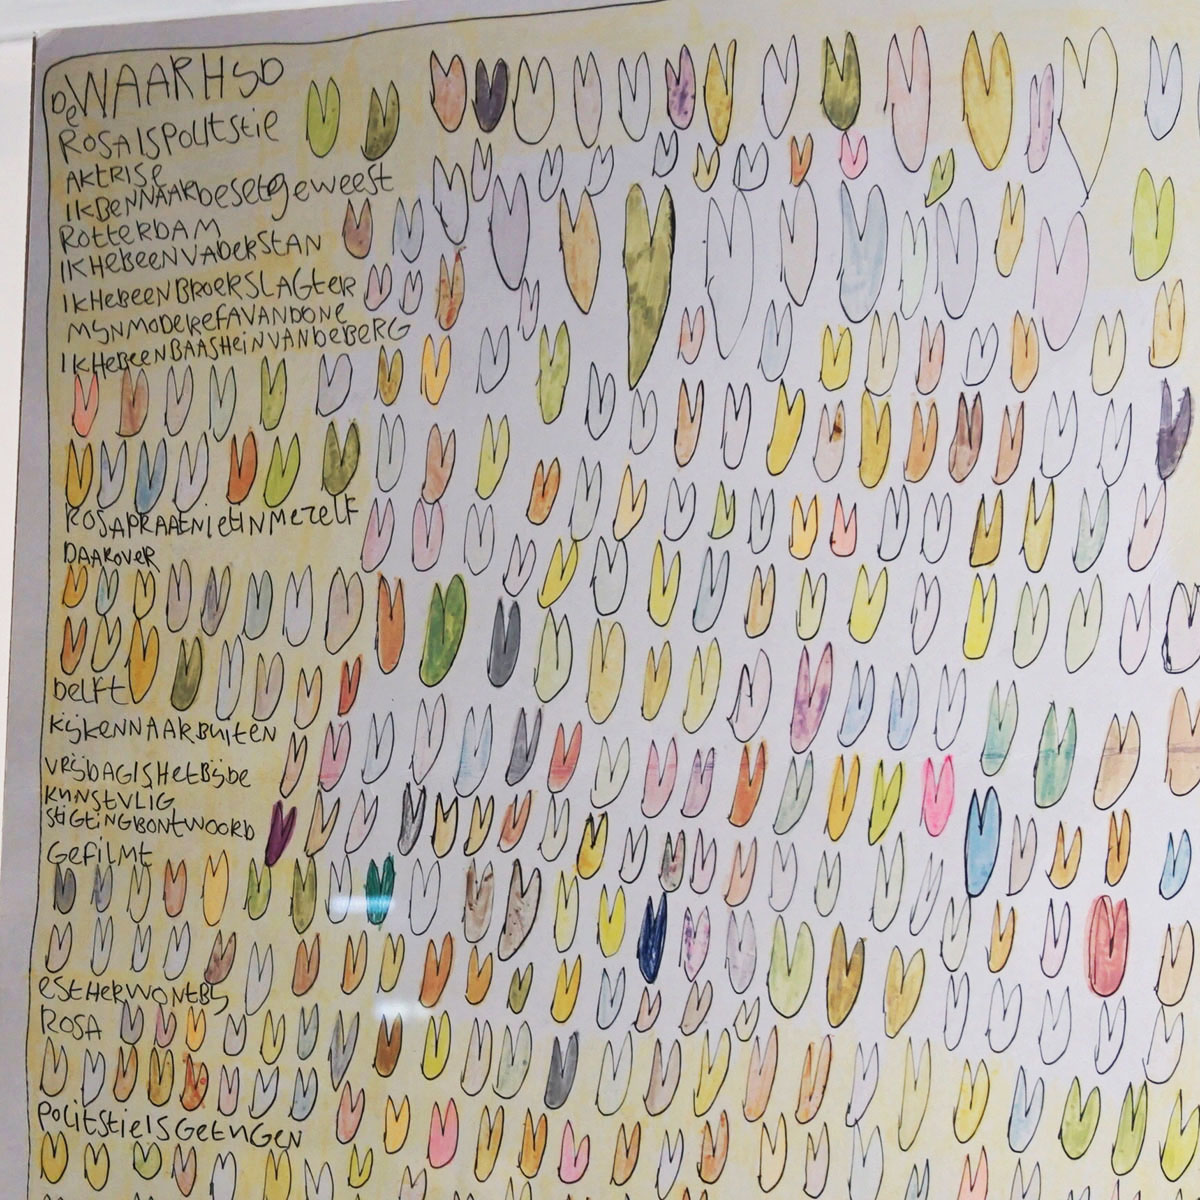 De WAARHSD
ROSAISPOLITSTIE
AKTRISE
IKBENNAARbesetgeweest
ROTTERDAM
IKHEBEENVADERSTAN
IKHEBEENBROERSLAGTER
MSNMODEREFAVANDONE
IKHEBEENBAASHEINVANDEBERG
ROSAPRAATNIETINMEZELF
DAAROVER
DELFT
KIJKENNAARBUITEN
VRIJDAGISHETBIJDE
KUNSTVLIG
STIGTINGBONTWOORD
GEFILMT
ESTHERWONTBIJ
ROSA
POLITSTIEISGETUGEN